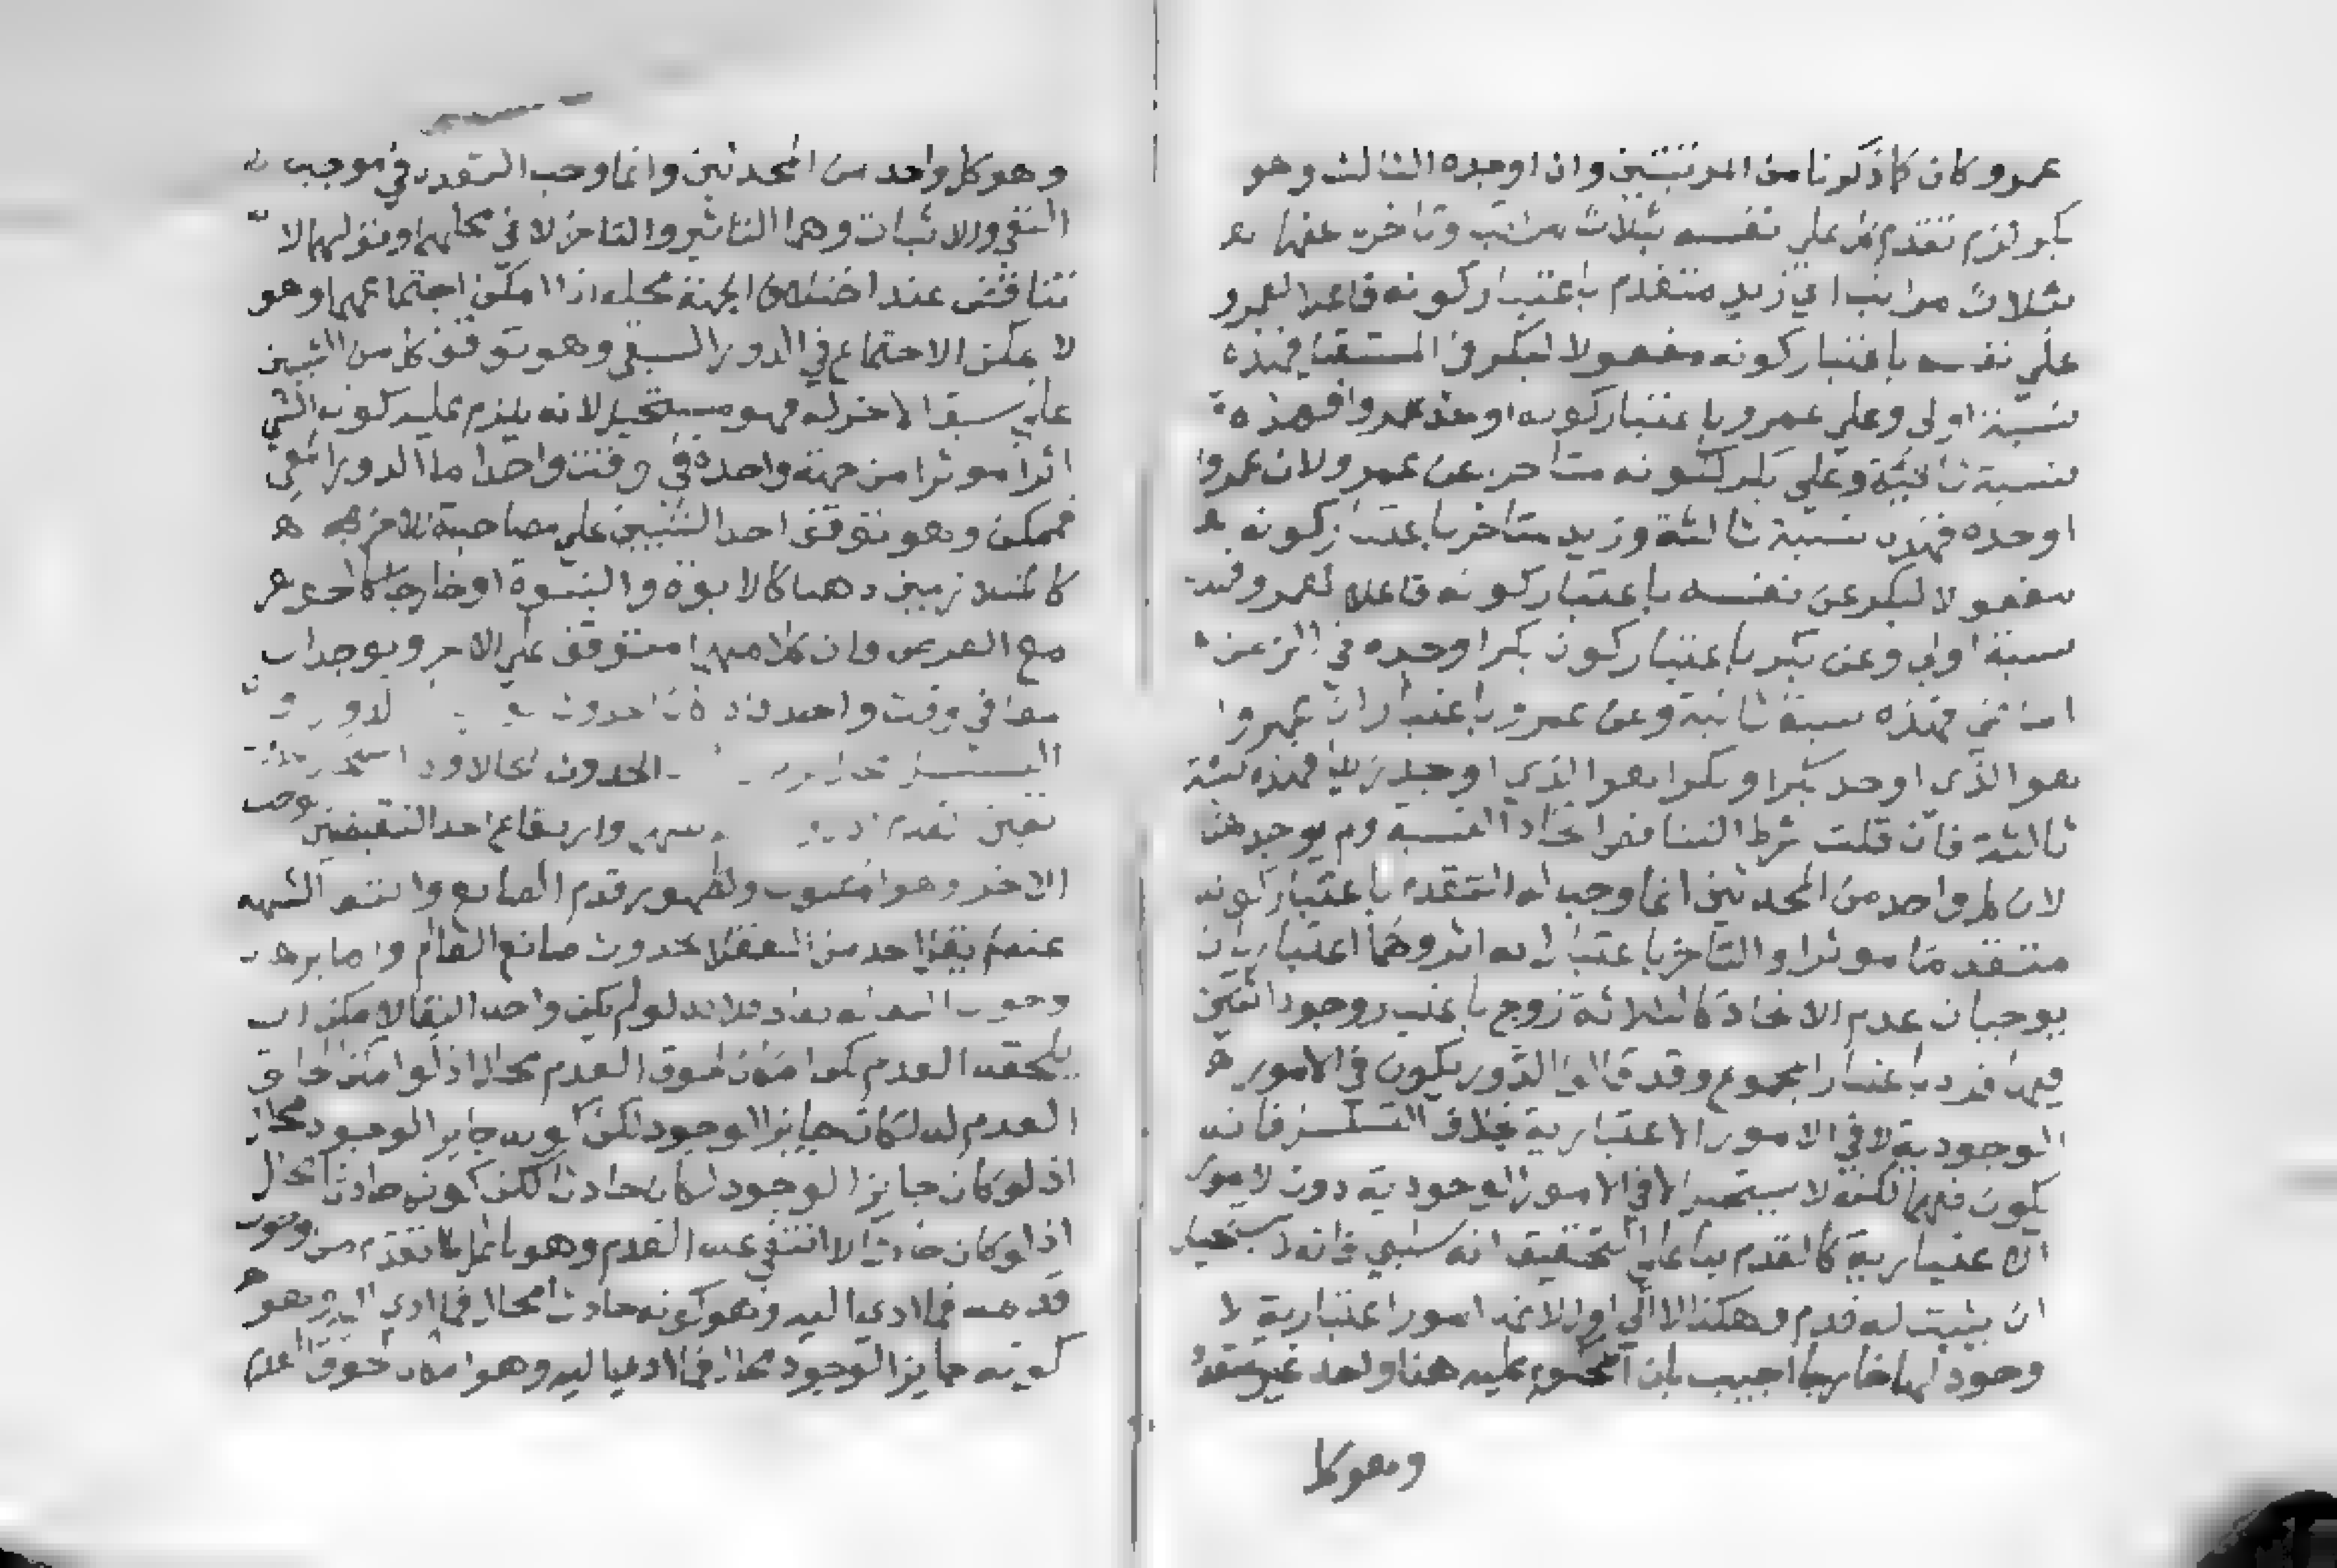 عمرو كان كما ذكرنا من المرتبتين وان اوجده الثالث وهو
بكر لزم تقدم كل علي نفسه بثلاث مراتب وتاخره عنها
بثلاث مراتب اي زيد متقدم باعتبار كونه فاعلا لعمرو
علي نفسه باعتبار كونه مفعولا لبكر في المستقبل فهذه
نسبة اولي وعلي عمرو باعتبار كونه اوجد عمروا فهذه
نسبة ثانية وعلي بكر لكونه متاخر عن عمرو لان عمروا
اوجده فهذه نسبة ثالثة وزيد متاخر باعتبار كونه
مفعولا لبكر عن نفسه باعتبار كونه فاعلا لعمرو فهذه
نسبة اولي وعن بكر باعتبار كون بكرا اوجده في
فهذه نسبة ثانية وعن عمرو باعتبار ان عمروا
هو الذي اوجد بكرا وبكرا هو الذي اوجد زيدا فهذه نسبة
ثالثة فان قلت شرط التناقض اتحاد النسبة ولم يوجد هنا
لان كل واحد من المحدثين انما وجب له التقدم باعتبار كونه
متقدما موثرا والتاخر باعتبار انه اثر وهما اعتباران
يوجبان عدم الاتحاد كالثلاثة زوج باعتبار وجود اثنين
فيها فرد باعتبار المجموع وقد قالوا الدور يكون في الامور
الوجودية لا في الامور الاعتبارية بخلاف التسلسل فانه
يكون فيهما لكنه لا يستحيل الا في الامور الوجودية دون الامور
الاعتبارية كالقدم بنا علي التحقيق انه سلبي فانه لا يستحيل
ان يثبت له قدم وهكذا لا الي اول لانها امورا اعتبارية لا
وجود لها خارجا اجيب بان المحكوم عليه هنا واحد غير متعدد
وهو كل
وهو كل واحد من المحدثين وانما وجب التعدد في موجب
النفي والاثبات وهما التاثير والتاخر لا في محلهما وقولهم لا
تناقض عند اختلاف الجهة محله اذا امكن اجتماعهما وهو
لا يمكن الاجتماع في الدور السبقي وهو توقف كل من الشيين
علي سبق الاخر له فهو مستحيل لانه يلزم عليه كون الشي
اثرا موثرا من جهة واحدة في وقت واحد اما الدور المعي
فممكن وهو توقف احد الشيين علي مصاحبة الاخر
كالمتلازمين ذهنا كالابوة والبنوة او خارجا كالجوهر
مع العرض فان كلا منهما متوقف علي الاخر ويوجدان
معا في وقت واحد فاذا كان حدوث الدور و
التسلسل محال الحدوث محالا واذا استحال
تعين قدم وارتفاع احد النقيضين يوجب
الاخر وهو المطلوب ولظهور قدم الصانع وانتفا الشبهة
عنه لم يقل احد من العقلا بحدوث صانع العالم واما برهان
وجوب البقا له تعالي فلانه لو لم يكن واجب البقا لامكن ان
يلحقه العدم لكن امكان لحوق العدم محال اذ لو امكن لحاق
العدم له لكان جايز الوجود لكن كونه جايز الوجود محال
اذ لو كان جايز الوجود لكان حادثا لكن كونه حادثا محال
اذ لو كان حادثا لا انتفي عنه القدم وهو باطل لما تقدم من وجوب
قدمه فما ادي اليه وهو كونه حادثا محال فما ادي اليه وهو
كونه جايز الوجود محال فما ادي اليه وهو امكان لحوق العدم